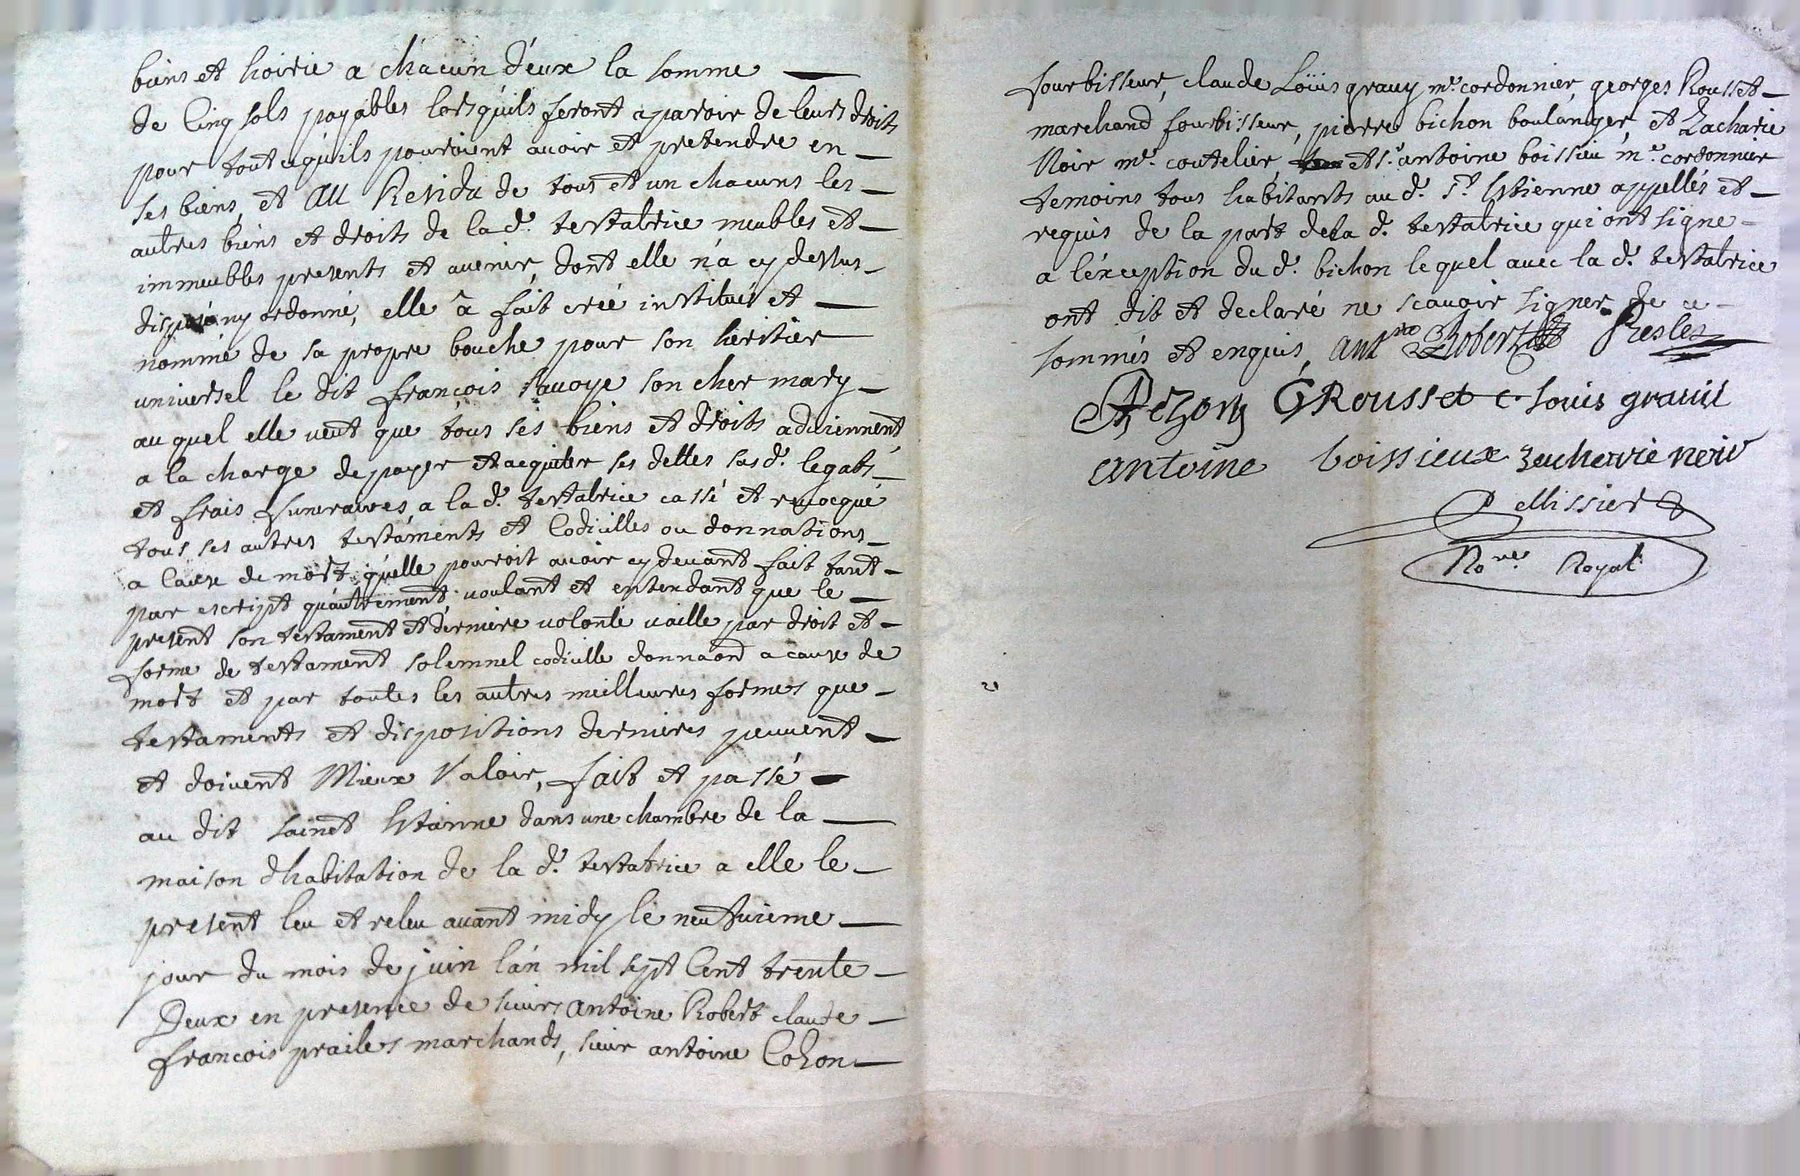 biens et hoirie a chacun d'eux la somme —
de Cinq sols payables lorsqu'ils feront aparoir de leurs droits
pour tout cequ'ils pouroient avoir et pretendre en —
ses biens, et au Residu de tous et un chacuns les —
autres biens et droits de la d.e testatrice meubles et —
immeubles presents et avenir, dont elle n'a cy dessus —
disposé ny ordonné, elle â fait creé institué et —
nommé de sa propre bouche pour son heritier
universel le dit françois savoye son cher mary —
au quel elle veut que tous ses biens et droits adviennent,
a la charge de payer et acquiter ses dettes susd.s legats —
et frais funeraires, a la d.e testatrice cassé et revocqué
tous ses autres testaments et Codicilles ou donnations —
a Cause de mort qu'elle pourroit avoir cy devant fait tant —
par escript qu'autrement, voulant et entendant que le —
present son testament et derniere volonté vaille par droit et —
forme de testament solemnel codicille donnaon a cause de
mort et par toutes les autres meilleures formes que —
testaments et dispositions dernieres peuvent —
et doivent Mieux Valoir, fait et passé —
au dit sainct Estienne dans une chambre de la —
maison d'habitation de la d.e testatrice a elle le —
present leu et releu avant midy le neufvieme —
jour du mois de juin l'an mil sept Cent trente —
Deux en presence de sieurs antoine Robert claude —
francois prailes marchands, sieur antoine Cohon —
fourbisseur, claude Loüis gravy m.e cordonnier, georges Rousset —
marchand fourbisseur, pierre bichon boulanger, et Zacharie
Noir m.e coutelier, et s.r antoine boissieu m.e cordonnier
temoins tous habitants au d. S.t Estienne appellés et —
requis de la part de la d.e testatrice qui ont signe —
a l'exception du d. bichon lequel avec la d.e testatrice
ont dit et declaré ne scavoir signer de ce —
sommés et enquis, ant.ne Robert
GRousset C. Louis gravil
antoine boissieux zacherie noir
Pellissier
No.re Royal